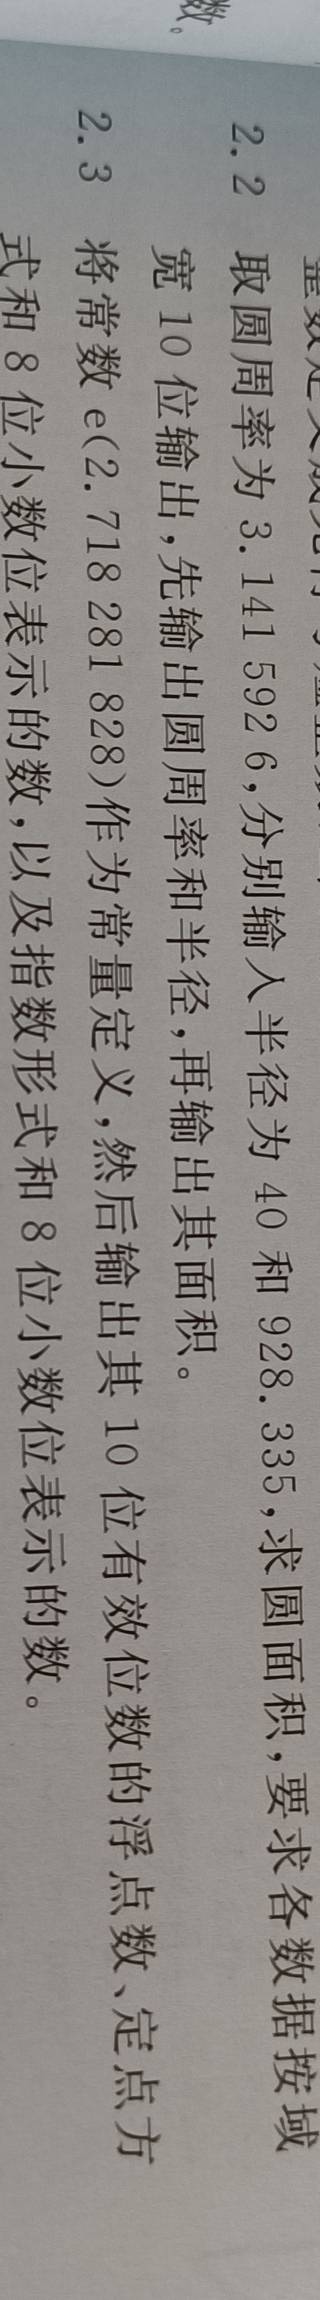 数。
2.2 取圆周率为 3.141 592 6,分别输入半径为 40 和 928.335,求圆面积,要求各数据按域
宽 10 位输出,先输出圆周率和半径,再输出其面积。
2.3 将常数 e(2.718 281 828)作为常量定义,然后输出其 10 位有效位数的浮点数、定点方
式和 8 位小数位表示的数,以及指数形式和 8 位小数位表示的数。